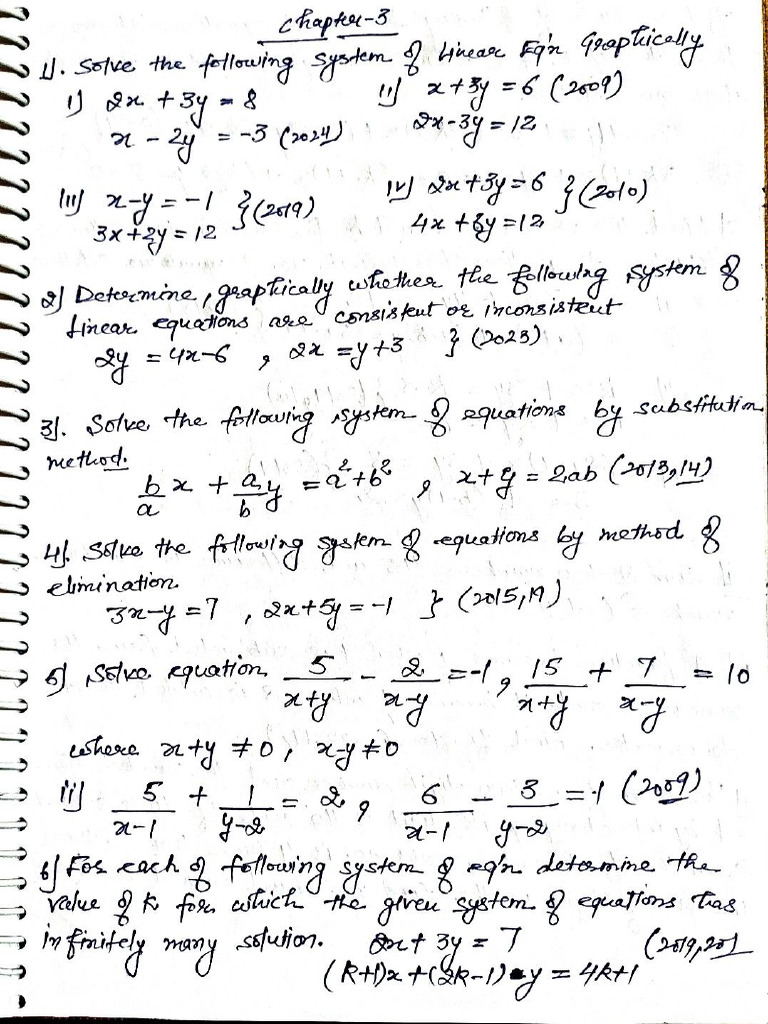 Chapter-3
1). Solve the following system of Linear Eq'n Graphically
i) 2x + 3y = 8 ii) x + 3y = 6 (2009)
x - 2y = -3 (2024) 2x - 3y = 12
iii) x - y = -1 } (2019) iv) 2x + 3y = 6 } (2010)
3x + 2y = 12 4x + 6y = 12
2) Determine, graphically whether the following system of
linear equations are consistent or inconsistent
2y = 4x - 6 , 2x = y + 3 } (2023)
3). Solve the following system of equations by substitution
method.
b/a x + a/b y = a² + b² , x + y = 2ab (2013,14)
4). Solve the following system of equations by method of
elimination
3x - y = 7 , 2x + 5y = -1 } (2015,19)
5) Solve equation 5/(x+y) - 2/(x-y) = -1 , 15/(x+y) + 7/(x-y) = 10
where x+y ≠ 0, x-y ≠ 0
ii) 5/(x-1) + 1/(y-2) = 2 , 6/(x-1) - 3/(y-2) = 1 (2009)
6) For each of following system of eq'n determine the
value of k for which the given system of equations has
infinitely many solution. 2x + 3y = 7 (2019,20)
(k+1)x + (2k-1)y = 4k+1